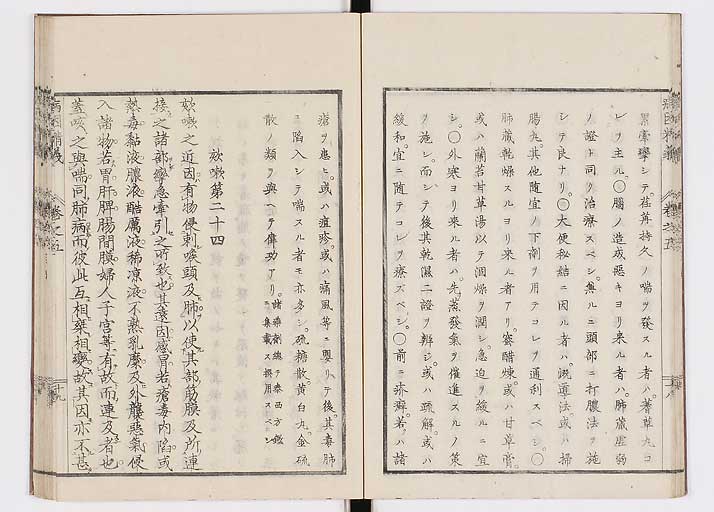 累牽攣シテ。荏苒持久ノ喘ヲ發スル者ハ。蓍草丸コ
レヲ主ル。○腸ノ造成惡キヨリ來ル者ハ。肺藏虛弱
ノ證ト同ク治療スベシ。無ルニ頭部ニ打膿法ヲ施
シテ良ナリ。○大便秘結ニ因ル者ハ。漑導法或ハ掃
腸丸。其他随宜ノ下劑ヲ用テコレヲ通利スベシ。○
肺藏乾燥スルヨリ來ル者アリ。蜜醋煉或ハ甘草膏。
或ハ蘭苔甘草湯以テ涸燥ヲ潤シ。急迫ヲ緩ルニ宜
シ。○外寒ヨリ來ル者ハ。先蒸發氣ヲ催進スルノ策
ヲ施シ。而シテ後其乾濕二證ヲ辨ジ。或ハ疏解。或ハ
緩和。宜ニ随テコレヲ療スベシ。○前ニ疥癬。若ハ諸
瘡ヲ患ヒ。或ハ痘疹。或ハ痛風等ニ嬰リテ後。其毒肺
ニ陷入シテ喘スル者モ亦多シ。硫糖散。黃白丸。金硫
散ノ類ヲ與ヘテ偉功アリ。諸藥劑總テ泰西方鑑ニ集載ス撰用スベシ
欬嗽第二十四
欬嗽之近因。有物侵刺喉頭及肺。以使其部筋膜及所連
接之諸部攣急牽引之所致也。其遠因。感冒。若瘡毒内陷。或
熱毒黏液膿液酷厲液稀凉液不熟乳糜及外襲惡氣侵
入諸物。若胃肝脾腸間膜婦人子宮等。有故而連及者也。
蓋咳之與喘。同肺病。而彼此互相乗相襲。故其因亦不甚
病因精義 卷之五